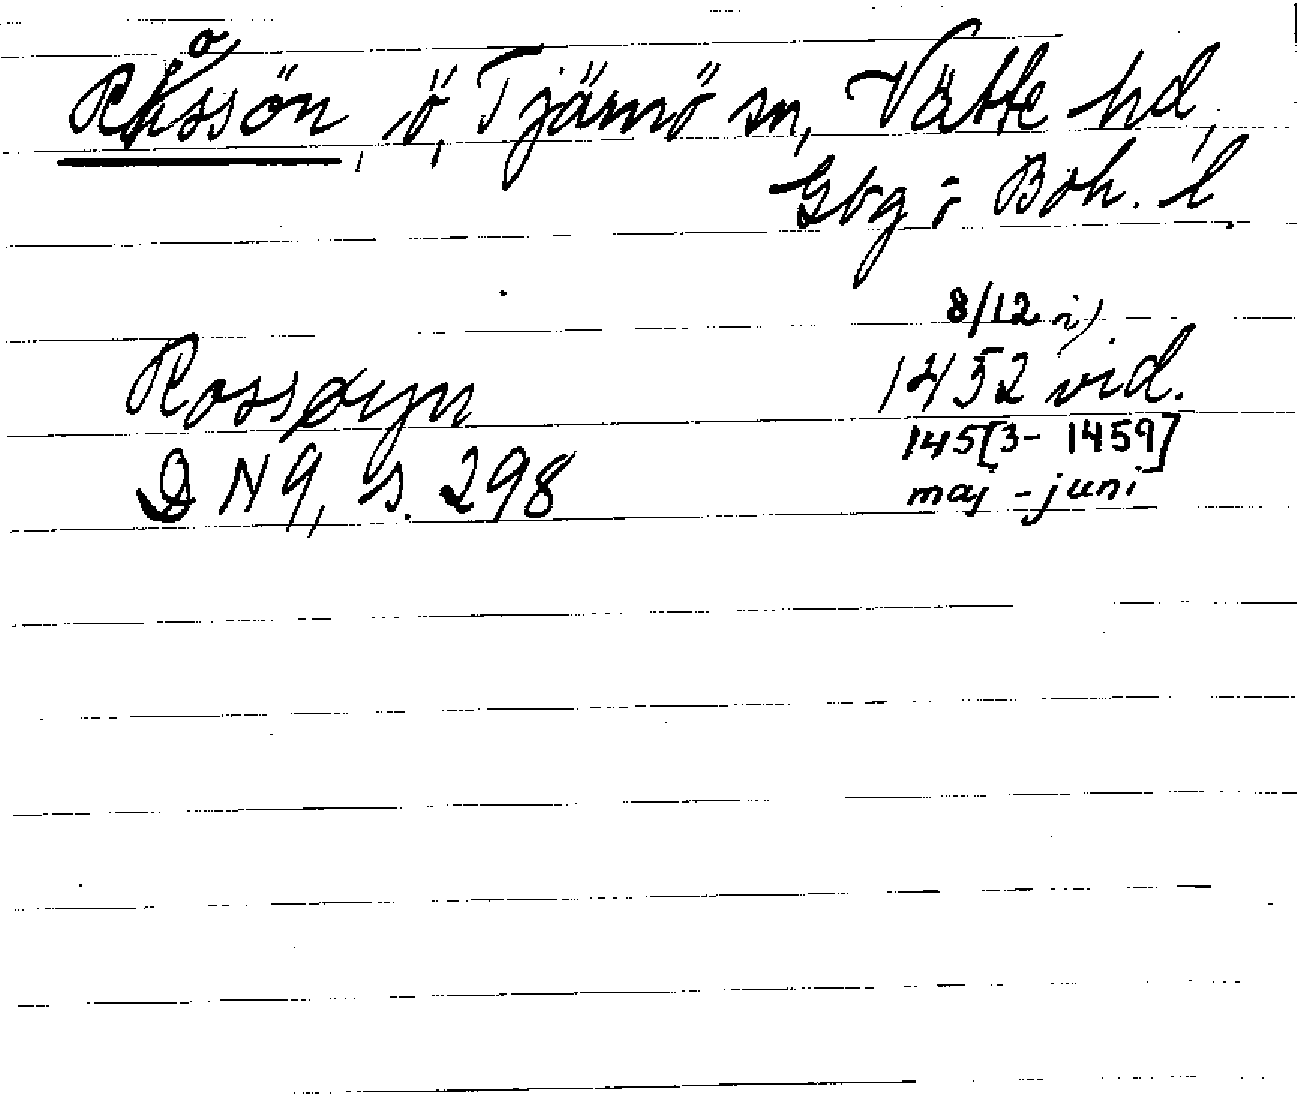 Rossön, ö, Tjärnö sn, Vätte hd,
Gbg o Boh. l.
8/12 i)
Rossøyn 1452 vid.
145[3- 1459]
DN 9, s. 298 maj - juni